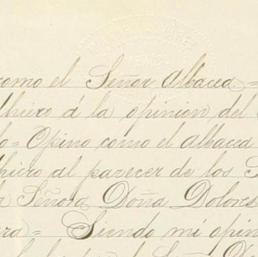 como el Señor Albacea =
dhiero á la opinion del
Opino como el albacea
hiero al parecer de los S
Señora Doña Dolores
Siendo mi opin